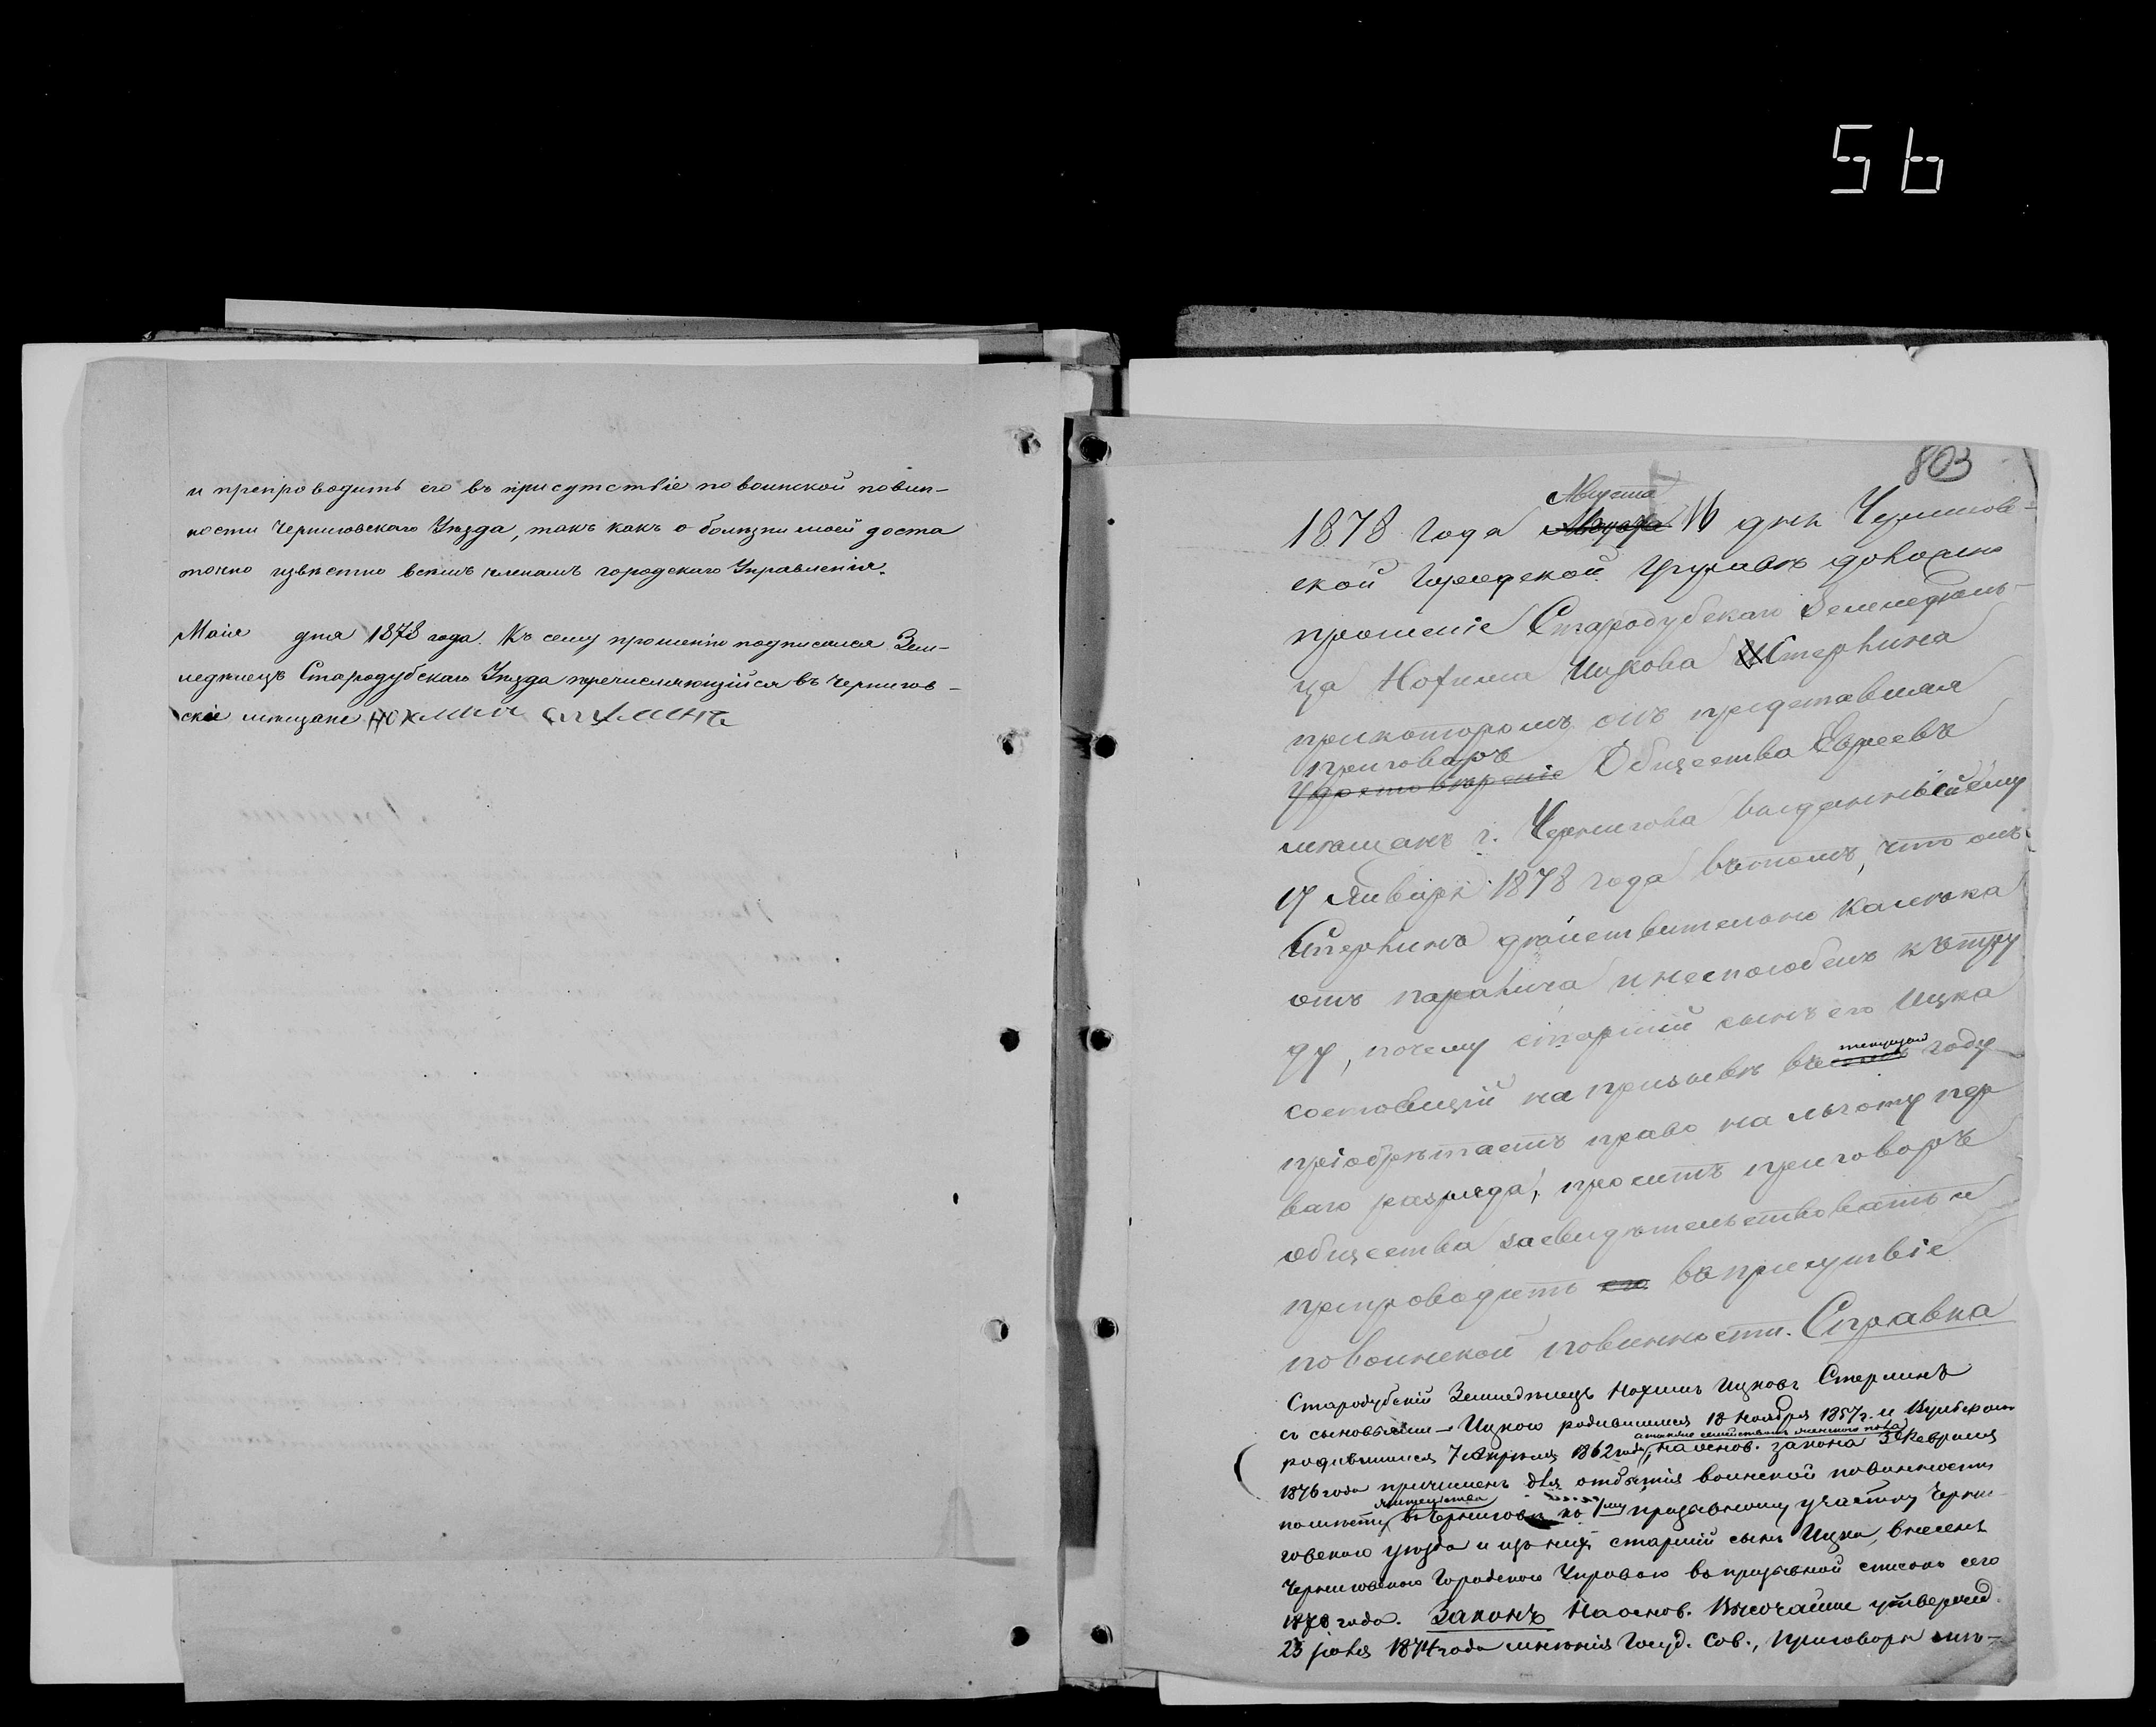 56
и препроводить его въ присутствіе по воинской повин-
ности Черниговскаго Уѣзда, такъ какъ о болѣзни моей доста
точно извѣстно всѣмъ членамъ городскаго Управленія.
Маія дня 1878 года. Къ сему прошенію подписался Зем-
ледѣлецъ Стародубскаго Уѣзда перечисляющійся въ Чернигов-
скіе мѣщане
803
Августа
1878 года 16 дня Чернигов-
ской Городской Управѣ доложено
прошеніе Стародубскаго Земледѣль-
ца Нохима Ицкова Стерлина
при которомъ онъ представляя
приговоръ
удостовѣреніе Общества Евреевъ
мѣщанъ г. Чернигова выданный ему
17 Января 1878 года въ томъ, что онъ
Стерлинъ дѣйствительно калѣка
отъ паралича и неспособенъ къ тру
ду, почему старшій сынъ его Ицка
текущемъ
состоящій на призывѣ въ семъ году
пріобрѣтаетъ право на льготу пер
ваго разряда, проситъ приговоръ
общества засвидѣтельствовать и
препроводить его въ присутствіе
по воинской повинности. Справка
Стародубскій Земледѣлецъ Нохимъ Ицковъ Стерлинъ
съ сыновьями – Ицкою родившимся 18 Ноября 1857 г. и
родившимся 7 Апрѣля 1862 года, на основ. закона 3 Февраля
1876 года причисленъ для отбытія воинской повинности
жительства
по мѣсту въ Черниговѣ ко 1му призывному участку Черни-
говскаго уѣзда и изъ нихъ старшій сынъ Ицка, внесенъ
Черниговскою Городскою Управою въ призывной списокъ сего
1878 года. Законъ На основ. Высочайше утвержд.
23 1874 года мнѣнія Госуд. Сов., приговоры